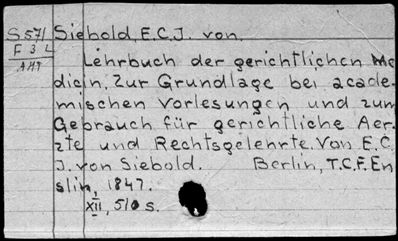 S 571 Siebold, E.C.J. von.
F 3 L
AMT
Lehrbuch der gerichtlichen Me
dicin. Zur Grundlage bei acade-
mischen Vorlesungen und zum
Gebrauch für gerichtliche Aer-
zte und Rechtsgelehrte. Von E.C.
J. von Siebold. Berlin, T.C.F. En
slin, 1847.
XII, 510 s.